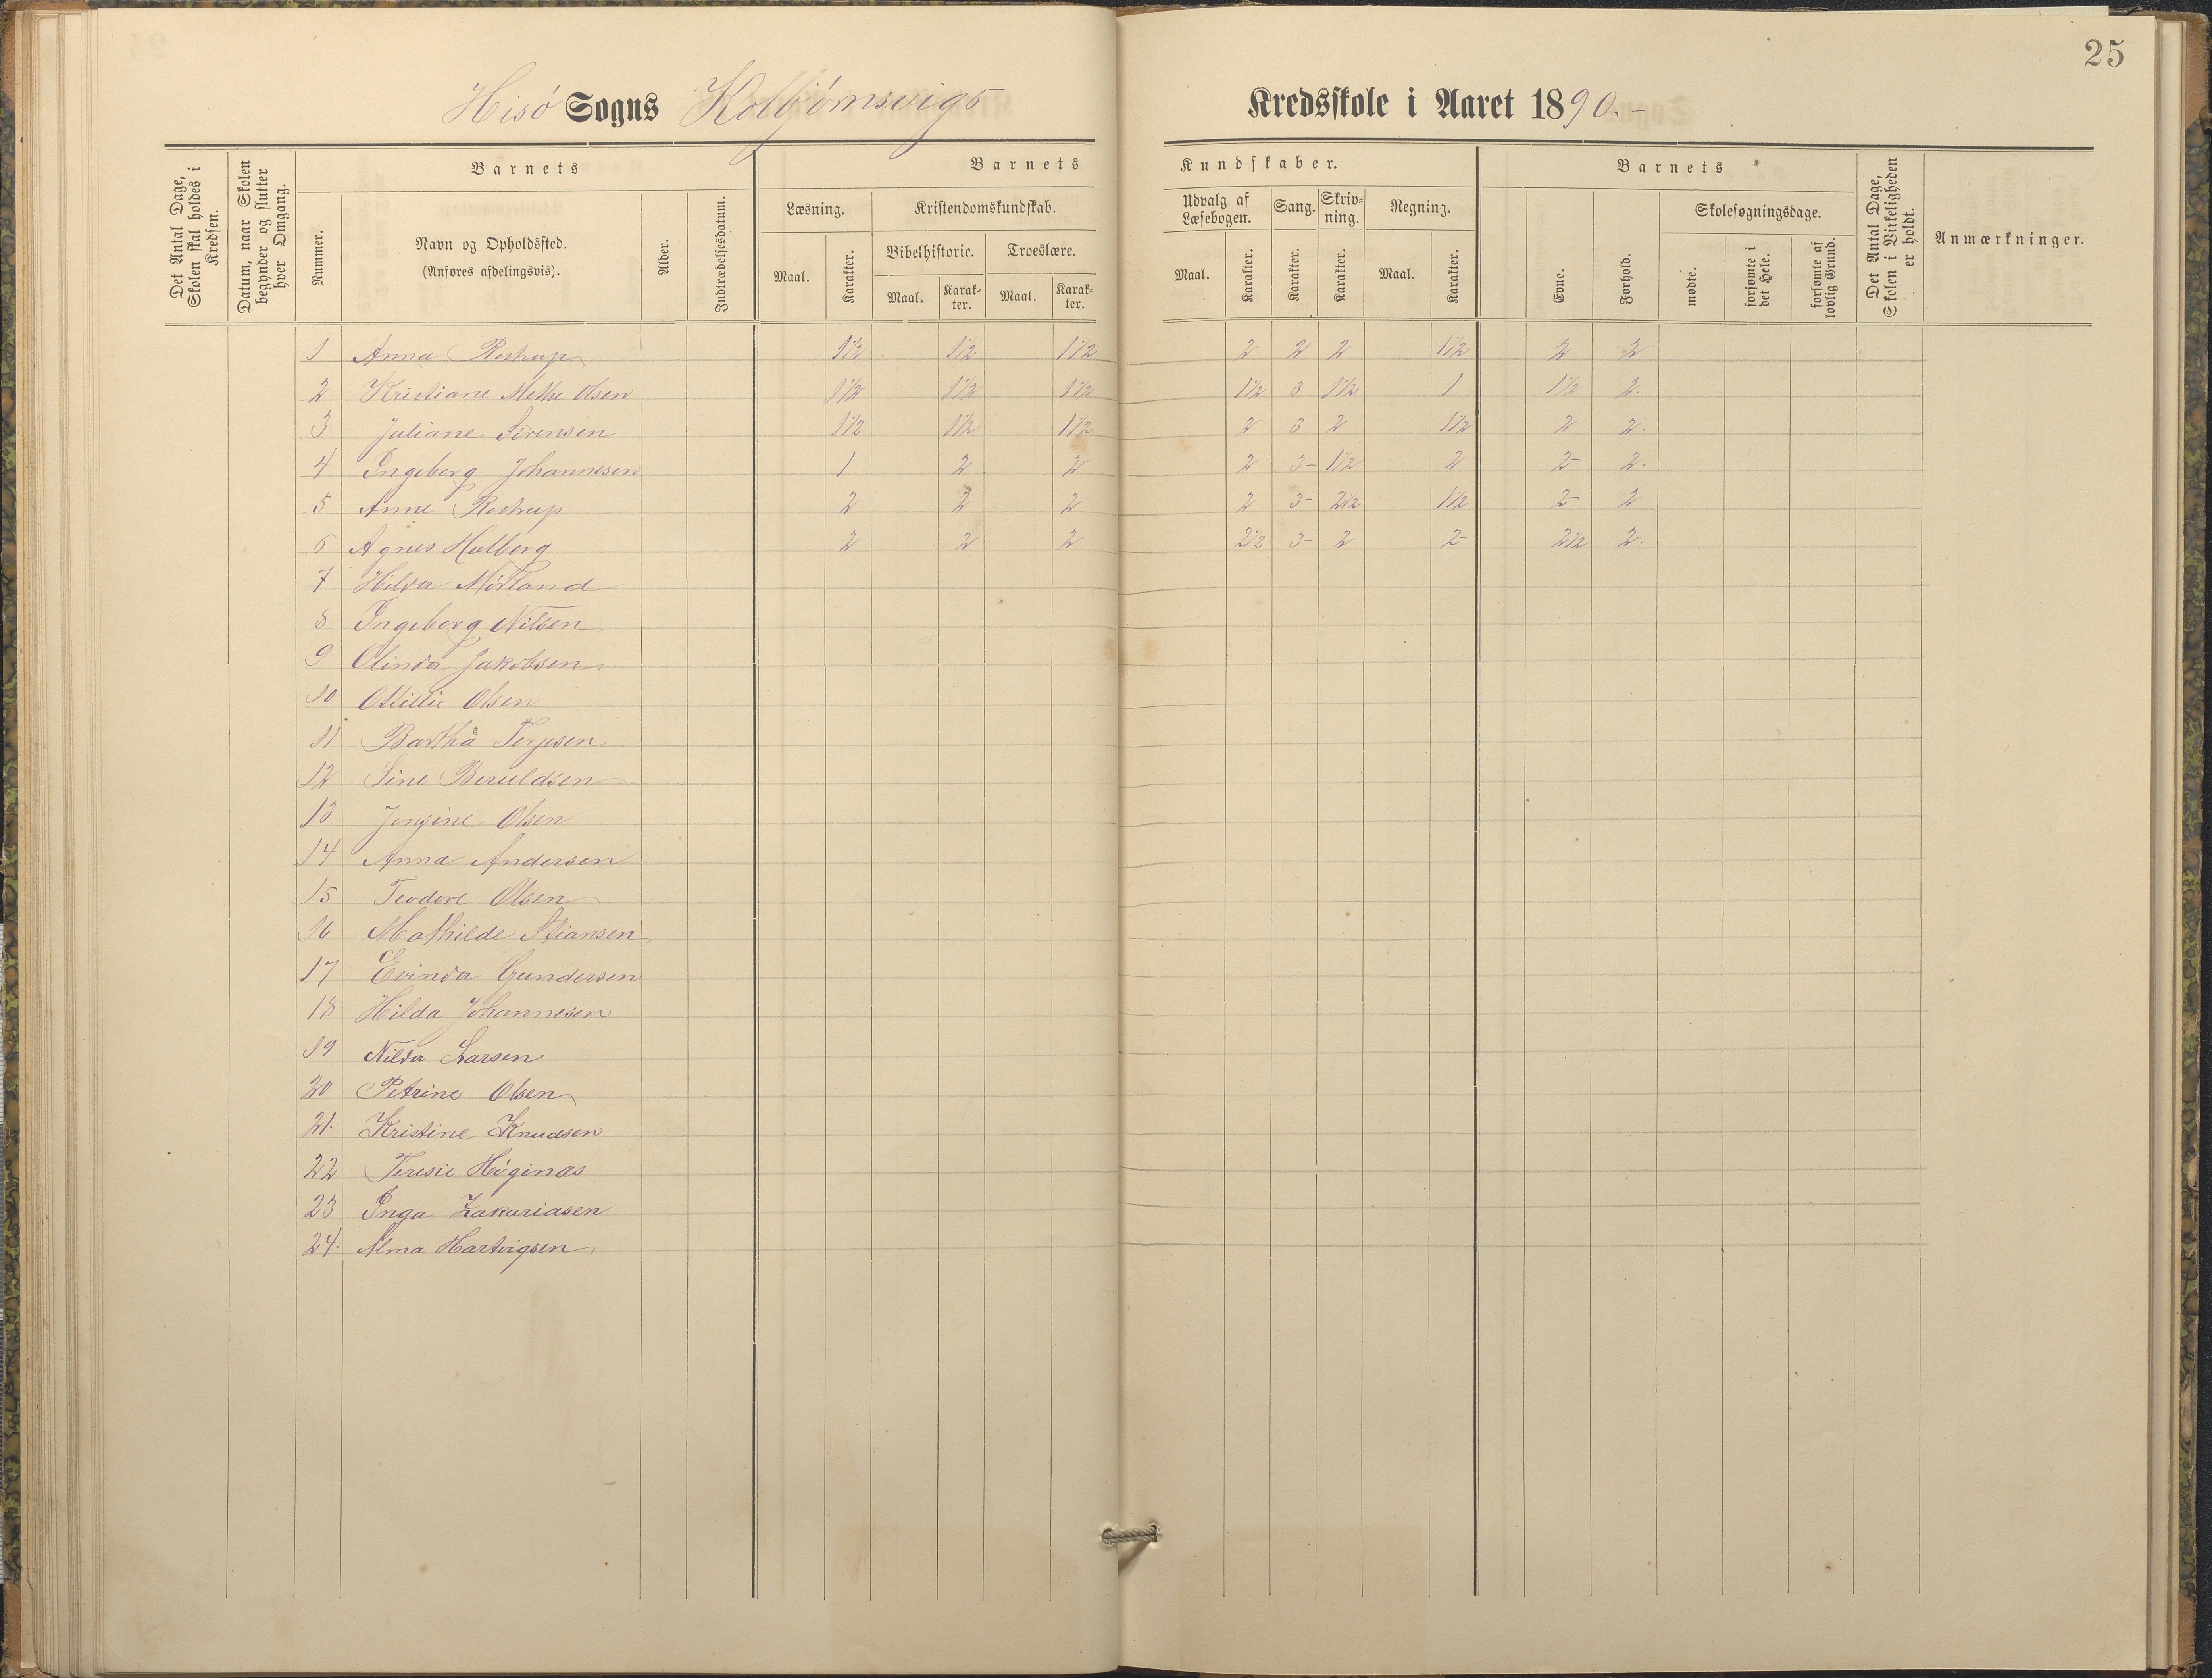 25
Hisö Sogns Kolbjörnsvigs Kredsskole i Aaret 1890.-
Det Antal Dage, Skolen skal holdes i Kredsen.
Datum, naar Skolen begynder og slutter hver Omgang.
Barnets
Nummer.
Navn og Opholdssted.
(Anføres afdelingsvis).
Alder.
Indtrædelsesdatum.
Barnets Kundskaber.
Læsning.
Maal.
Karakter.
Kristendomskundskab.
Bibelhistorie.
Maal.
Karakter.
Troeslære.
Maal.
Karakter.
Udvalg af Læsebogen.
Maal.
Karakter.
Sang.
Karakter.
Skrivning.
Karakter.
Regning.
Maal.
Karakter.
Barnets
Evne.
Forhold.
Skolesøgningsdage.
mødte.
forsømte i det Hele.
forsømte af lovlig Grund.
Det Antal Dage, Skolen i Virkeligheden er holdt.
Anmærkninger.
1 Anna Rostrup 1½ 1½ 1½ 2 2 2 1½ 2 2
2 Kristiane Methe Olsen 1½ 1½ 1½ 1½ 3 1½ 1 1½ 2.
3 Juliane Sörensen 1½ 1½ 1½ 2 3 2 1½ 2 2.
4 Ingeborg Johannesen 1 2 2 2 3- 1½ 2 2- 2.
5 Anne Rostrup 2 2 2 2 3- 2½ 1½ 2- 2
6 Agnes Holberg 2 2 2 2½ 3- 2 2- 2½ 2.
7 Hilda Mörland
8 Ingeborg Nilsen
9 Olinda Jakobsen.
10 Otillie Olsen
11 Bartha Terjesen
12 Sine Beruldsen
13 Jorgine Olsen
14 Anna Andersen
15 Teodore Olsen
16 Mathilde Stiansen
17 Evinda Gundersen
18 Hilda Johannesen
19 Nilda Larsen
20 Petrine Olsen
21. Kristine Knudsen
22 Teresie Höginæs
23 Inga Zakariasen
24. Alma Hartvigsen